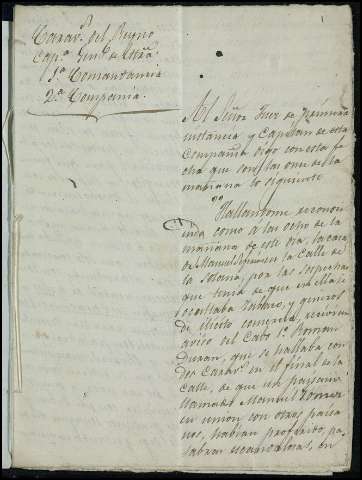 Carab.s del Reyno
Cap.a Gen.l de Estr.a
1.a Comandancia
2.a Compania
1
Al Señor Juez de Primera
instancia y Capitan de esta
Compañia digo con esta fe
cha que son las once de la
mañana lo siguiente
Hallandome reconoci
endo como a las ocho de la
mañana de este dia, la casa
de Manuel en la Calle de
la Solana, por las sospechas
que tenia de que en ella se
ocultaba tabaco, y generos
de ilicito comercio, recivi un
aviso del Cabo 1.o Roman
Duran, que se hallaba con
dos Carab.s en el final de la
Calle, de que un paysano
llamado Manuel Gomez
en union con otros paisa
nos, habian proferido, pa
labras escandalosas, en